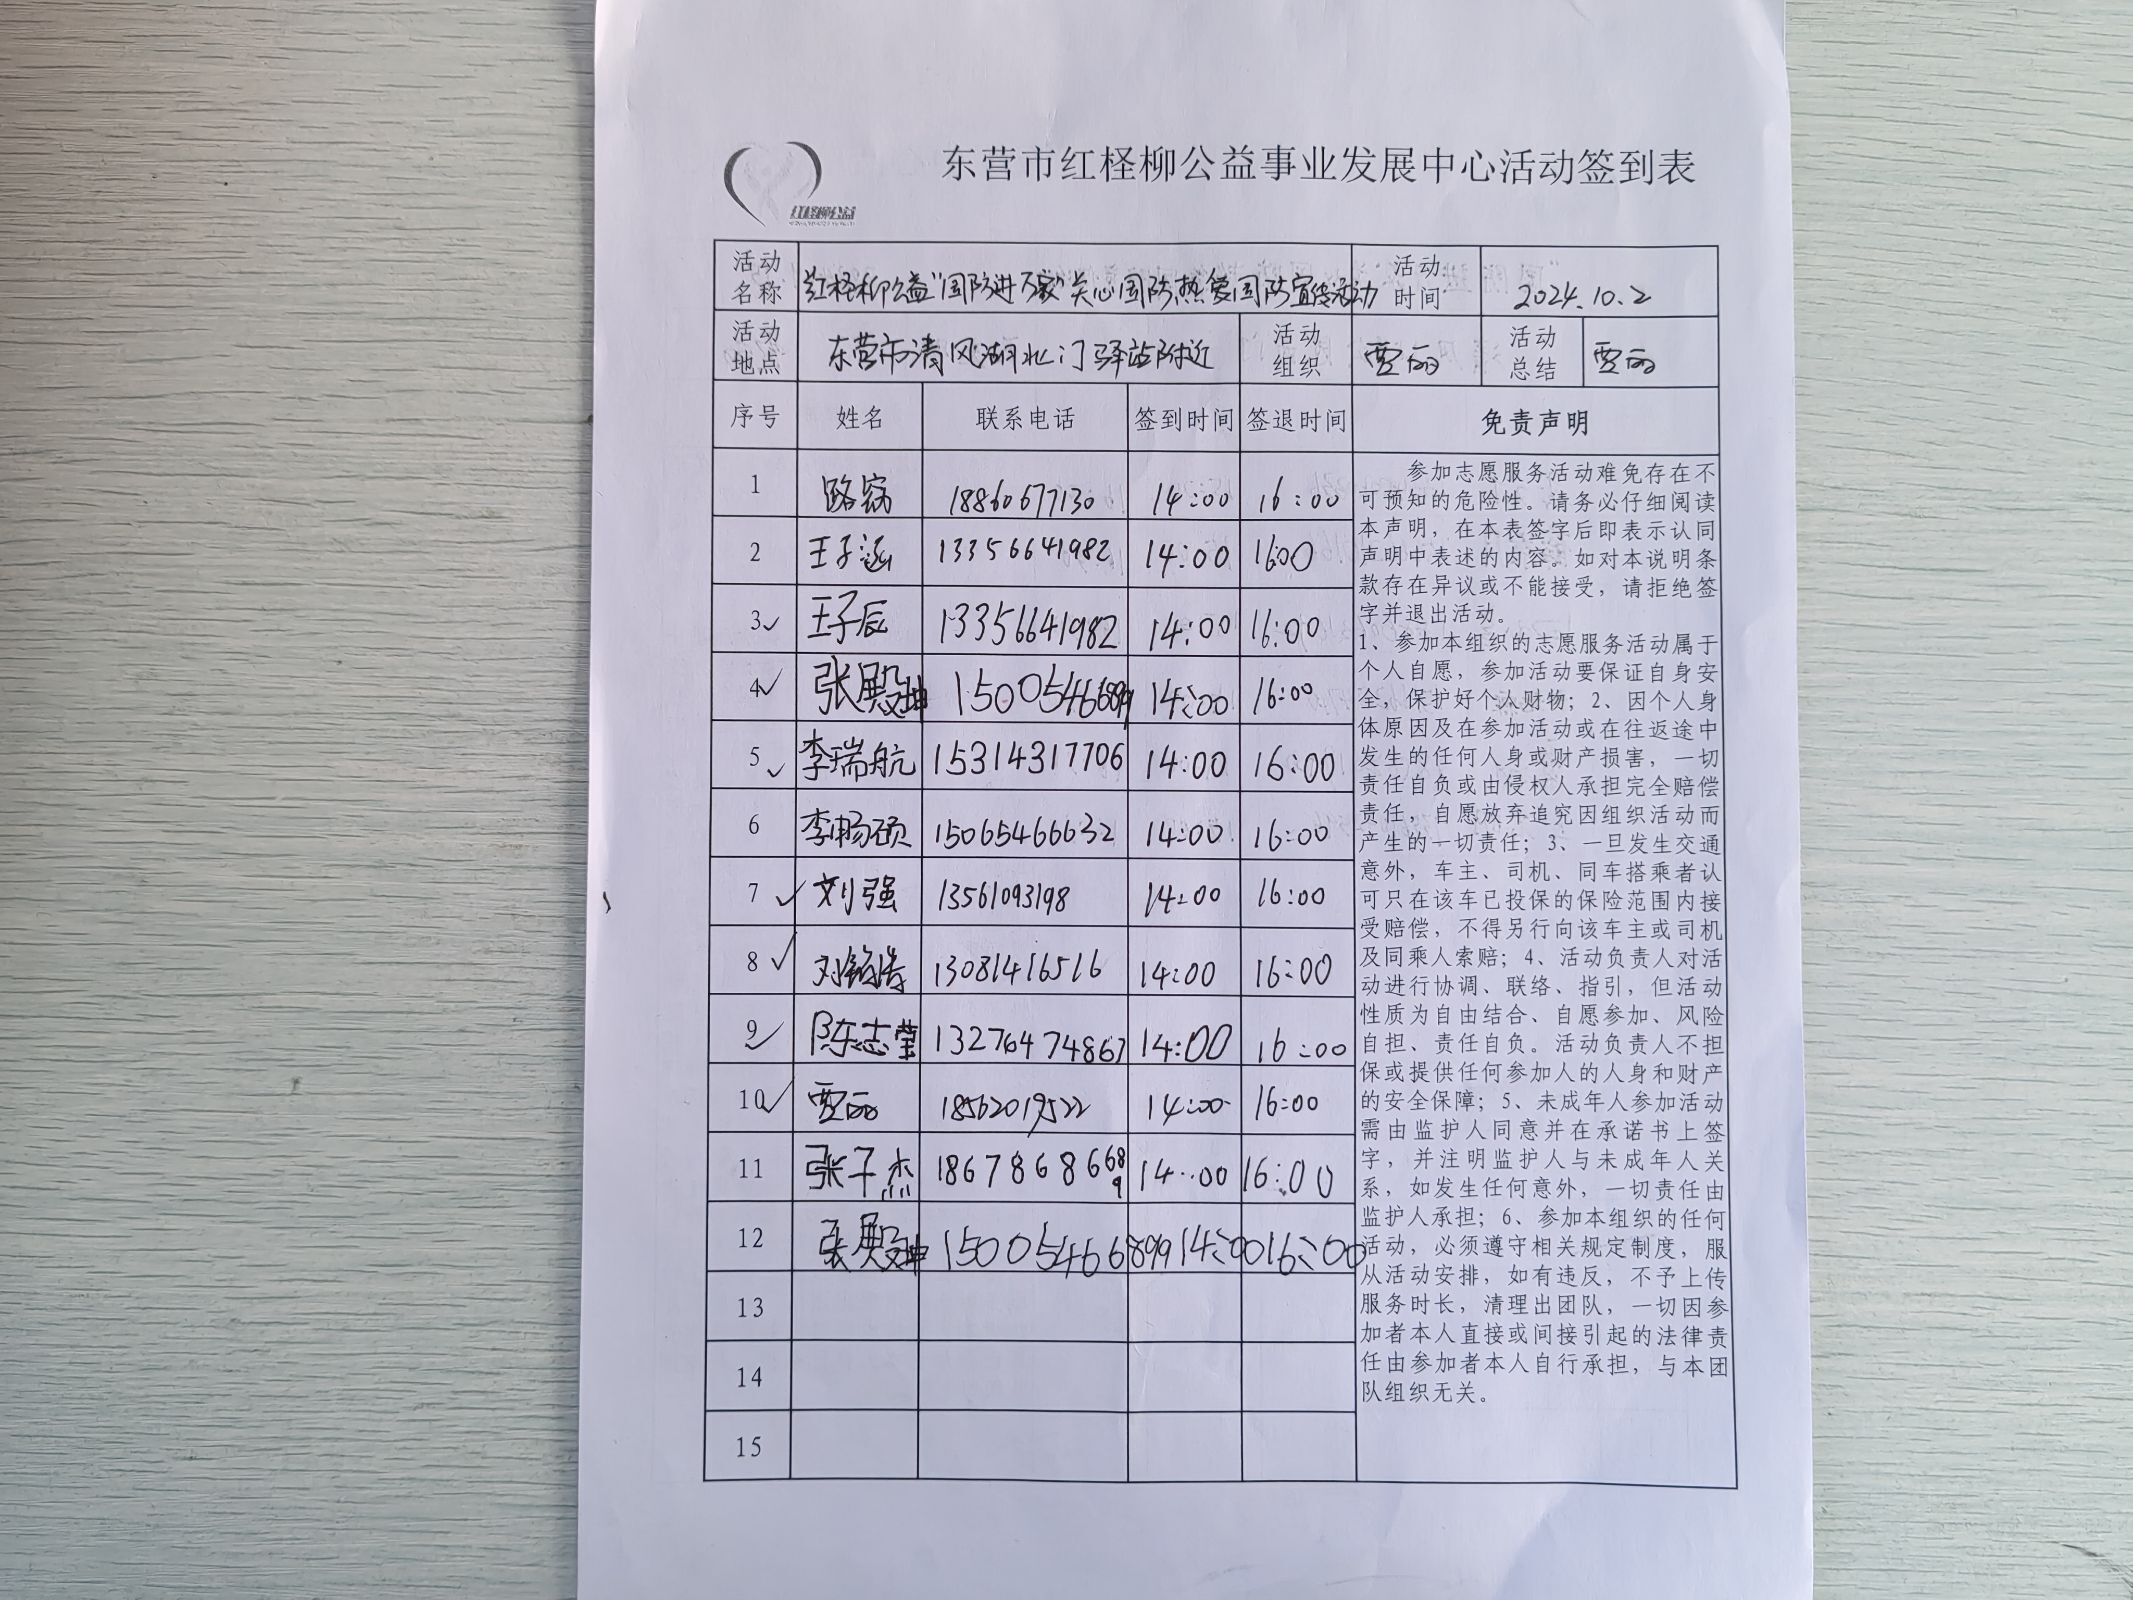 东营市红柽柳公益事业发展中心活动签到表
红柽柳公益
活动名称 红柽柳公益"国防进万家"关心国防,热爱国防宣传活动 活动时间 2024.10.2
活动地点 东营市清风湖北门驿站附近 活动组织 贾丽 活动总结 贾丽
序号 姓名 联系电话 签到时间 签退时间 免责声明
1 路窈 18860677130 14:00 16:00
2 王子涵 13356641982 14:00 16:00
3 王子辰 13356641982 14:00 16:00
4 张殿坤 15005466899 14:00 16:00
5 李瑞航 15314317706 14:00 16:00
6 李畅硕 15065466632 14:00 16:00
7 刘强 13561093198 14:00 16:00
8 刘铭浩 13081416516 14:00 16:00
9 陈志莹 13276474867 14:00 16:00
10 贾丽 18562019522 14:00 16:00
11 张子杰 18678686689 14:00 16:00
12 张殿坤 15005466899 14:00 16:00
13
14
15
参加志愿服务活动难免存在不
可预知的危险性。请务必仔细阅读
本声明，在本表签字后即表示认同
声明中表述的内容。如对本说明条
款存在异议或不能接受，请拒绝签
字并退出活动。
1、参加本组织的志愿服务活动属于
个人自愿，参加活动要保证自身安
全，保护好个人财物；2、因个人身
体原因及在参加活动或在往返途中
发生的任何人身或财产损害，一切
责任自负或由侵权人承担完全赔偿
责任，自愿放弃追究因组织活动而
产生的一切责任；3、一旦发生交通
意外，车主、司机、同车搭乘者认
可只在该车已投保的保险范围内接
受赔偿，不得另行向该车主或司机
及同乘人索赔；4、活动负责人对活
动进行协调、联络、指引，但活动
性质为自由结合、自愿参加、风险
自担、责任自负。活动负责人不担
保或提供任何参加人的人身和财产
的安全保障；5、未成年人参加活动
需由监护人同意并在承诺书上签
字，并注明监护人与未成年人关
系，如发生任何意外，一切责任由
监护人承担；6、参加本组织的任何
活动，必须遵守相关规定制度，服
从活动安排，如有违反，不予上传
服务时长，清理出团队，一切因参
加者本人直接或间接引起的法律责
任由参加者本人自行承担，与本团
队组织无关。